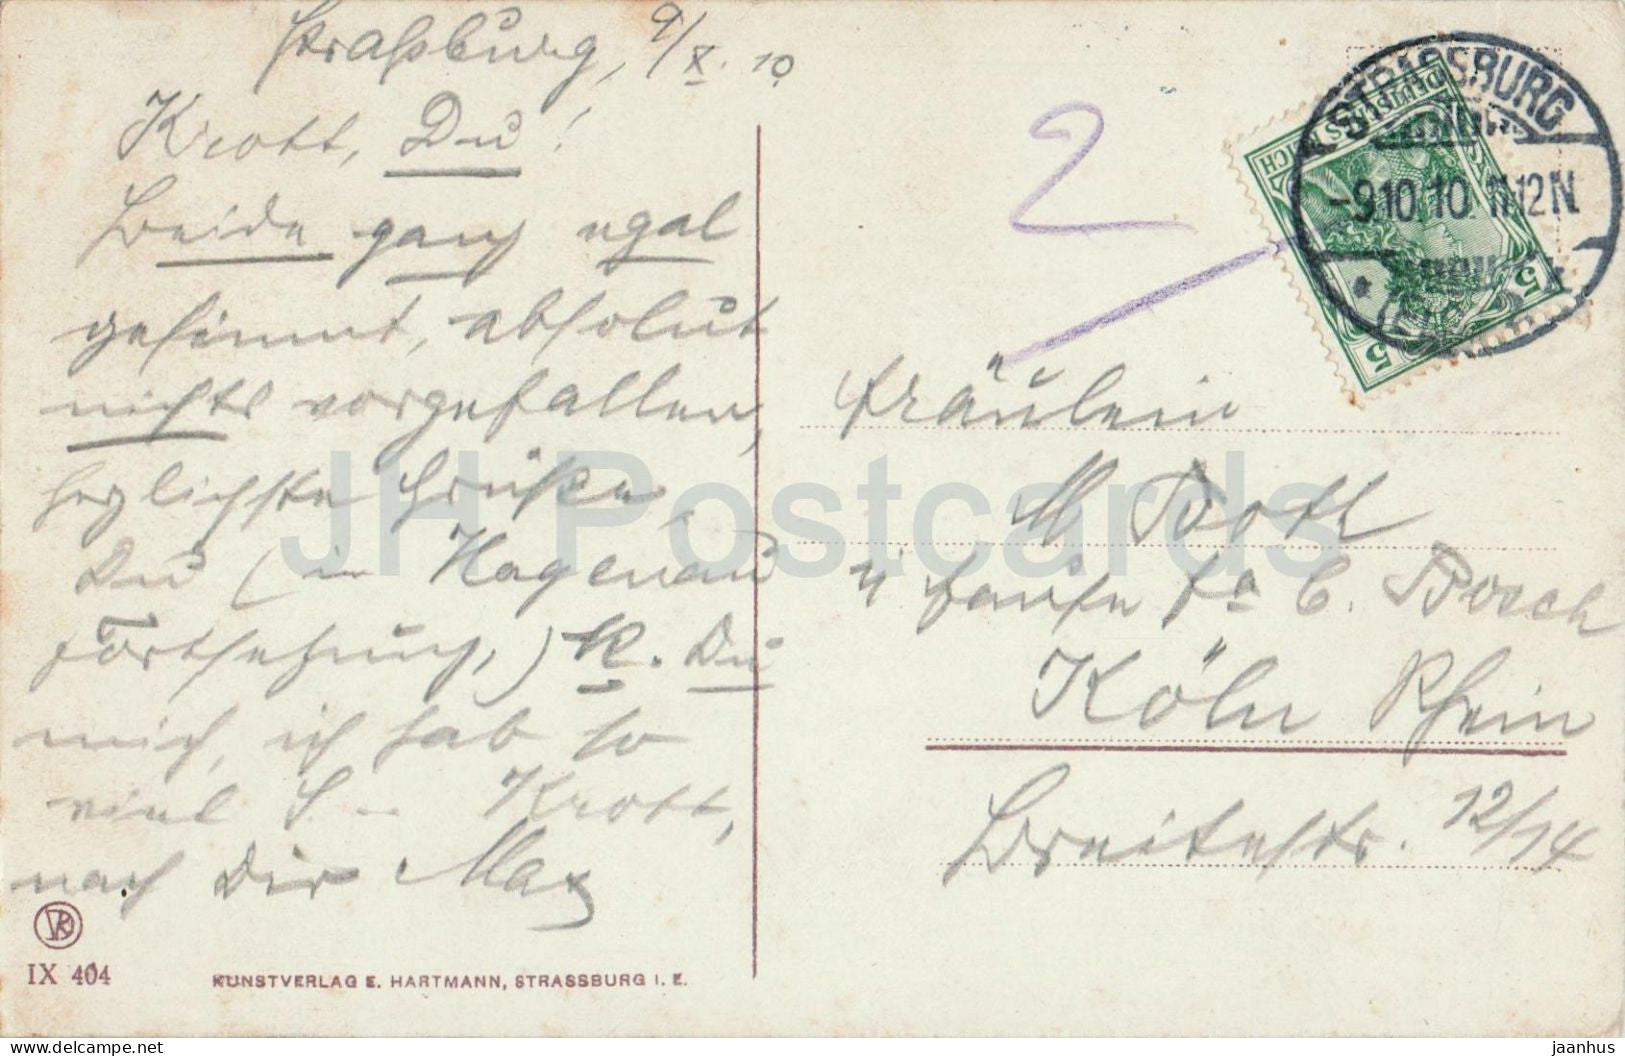 Straßburg, 9/X. 10
Krott, Du!
Beide ganz egal
gesinnt, absolut
nichts vorgefallen,
herzlichste Grüße,
Du (in Hagenau
Fortsetzung,) K. Du
mich, ich hab so
viel S – Krott,
nach Dir Max
IX 404
KUNSTVERLAG E. HARTMANN, STRASSBURG I. E.
2
STRASSBURG
-9.10.10. 11-12N.
DEUTSCHES REICH
5 5
Fräulein
M Bott
Fa C. Bosch
Köln Rhein
Breitestr. 12/14
JH Postcards
www.delcampe.net
jaanhus